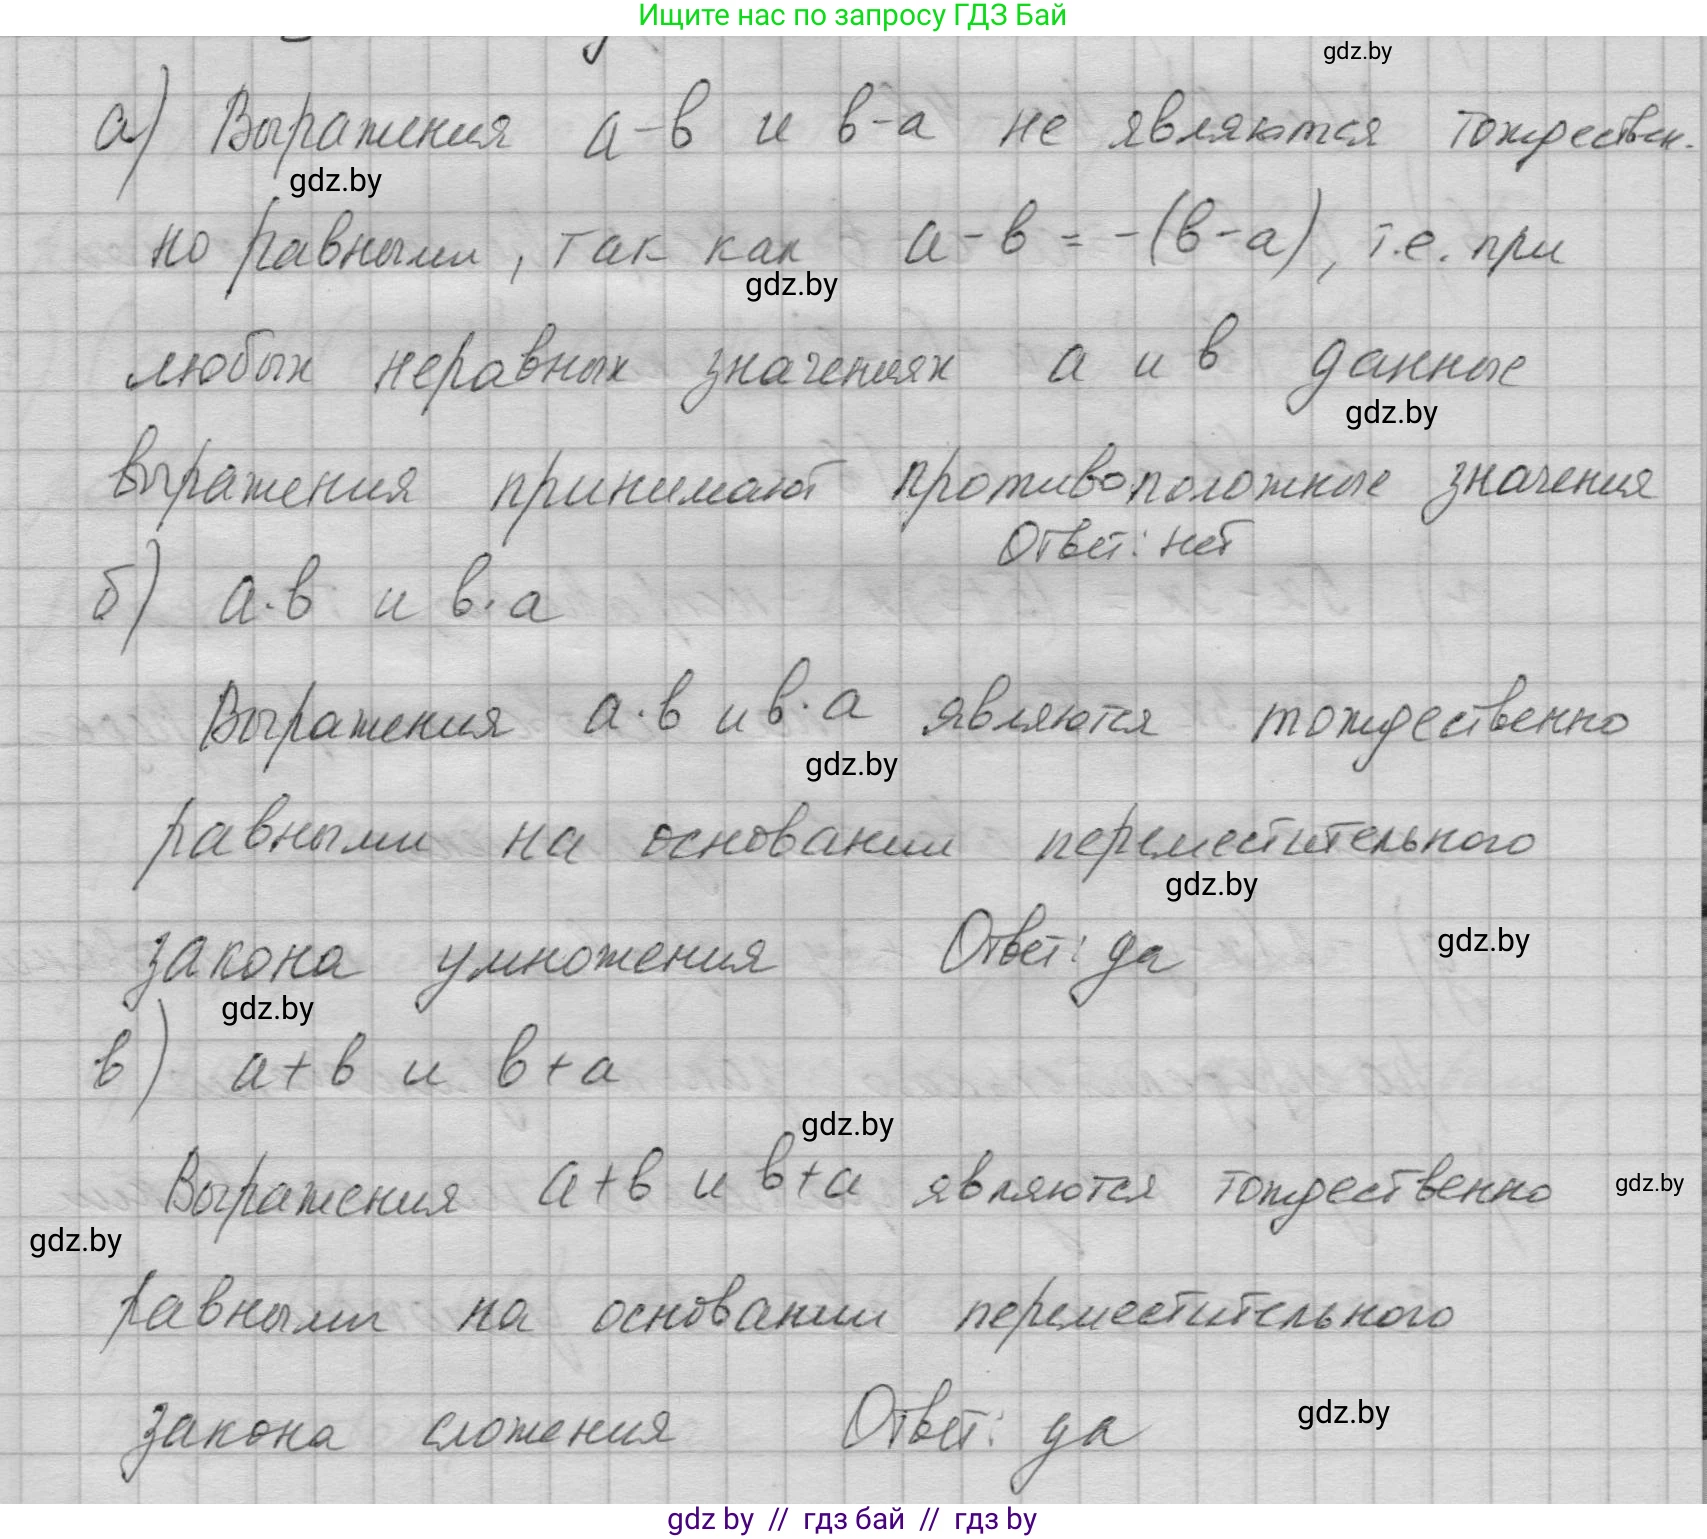 Ищите нас по запросу ГДЗ Бай
gdz.by
а) Выражения а-в и в-а не являются тождествен-
gdz.by
но равными, так как а-в = -(в-а), т.е. при
gdz.by
любых неравных значениях а и в данные
gdz.by
выражения принимают противоположные значения
Ответ: нет
б) а·в и в·а
Выражения а·в и в·а являются тождественно
gdz.by
равными на основании переместительного
gdz.by
закона умножения Ответ: да gdz.by
gdz.by
в) а+в и в+а
gdz.by
Выражения а+в и в+а являются тождественно gdz.by
gdz.by
равными на основании переместительного
закона сложения Ответ: да gdz.by
gdz by // гдз бай // гдз by